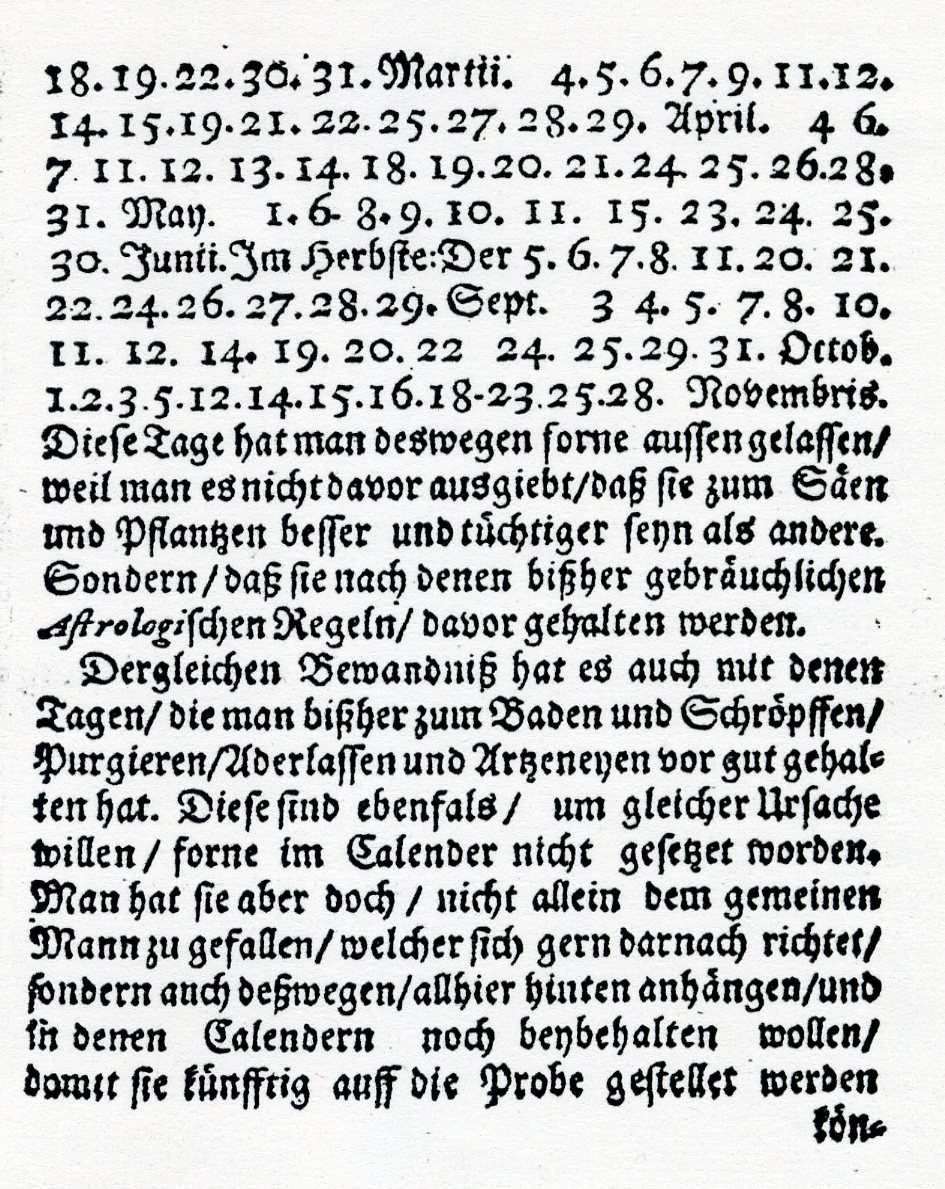 18.19.22.30.31. Martii. 4.5.6.7.9.11.12.
14.15.19.21.22.25.27.28.29. April. 4 6.
7 11. 12. 13. 14. 18. 19. 20. 21. 24. 25. 26. 28.
31. May. 1. 6. 8. 9. 10. 11. 15. 23. 24. 25.
30. Junii. Im Herbste: Der 5. 6. 7. 8. 11. 20. 21.
22. 24. 26. 27. 28. 29. Sept. 3 4. 5. 7. 8. 10.
11. 12. 14. 19. 20. 22 24. 25. 29. 31. Octob.
1.2.3.5.12.14.15.16.18-23.25.28. Novembris.
Dieſe Tage hat man deswegen forne auſſen gelaſſen/
weil man es nicht davor ausgiebt/ daß ſie zum Säen
und Pflantzen beſſer und tüchtiger ſeyn als andere.
Sondern/ daß ſie nach denen bißher gebräuchlichen
Aſtrologiſchen Regeln/ davor gehalten werden.
Dergleichen Bewandniß hat es auch mit denen
Tagen/ die man bißher zum Baden und Schröpffen/
Purgieren/ Aderlaſſen und Artzeneyen vor gut gehal-
ten hat. Dieſe ſind ebenfals/ um gleicher Urſache
willen/ forne im Calender nicht geſetzet worden.
Man hat ſie aber doch/ nicht allein dem gemeinen
Mann zu gefallen/ welcher ſich gern darnach richtet/
ſondern auch deßwegen/ allhier hinten anhängen/ und
in denen Calendern noch beybehalten wollen/
damit ſie künfftig auff die Probe geſtellet werden
kön-